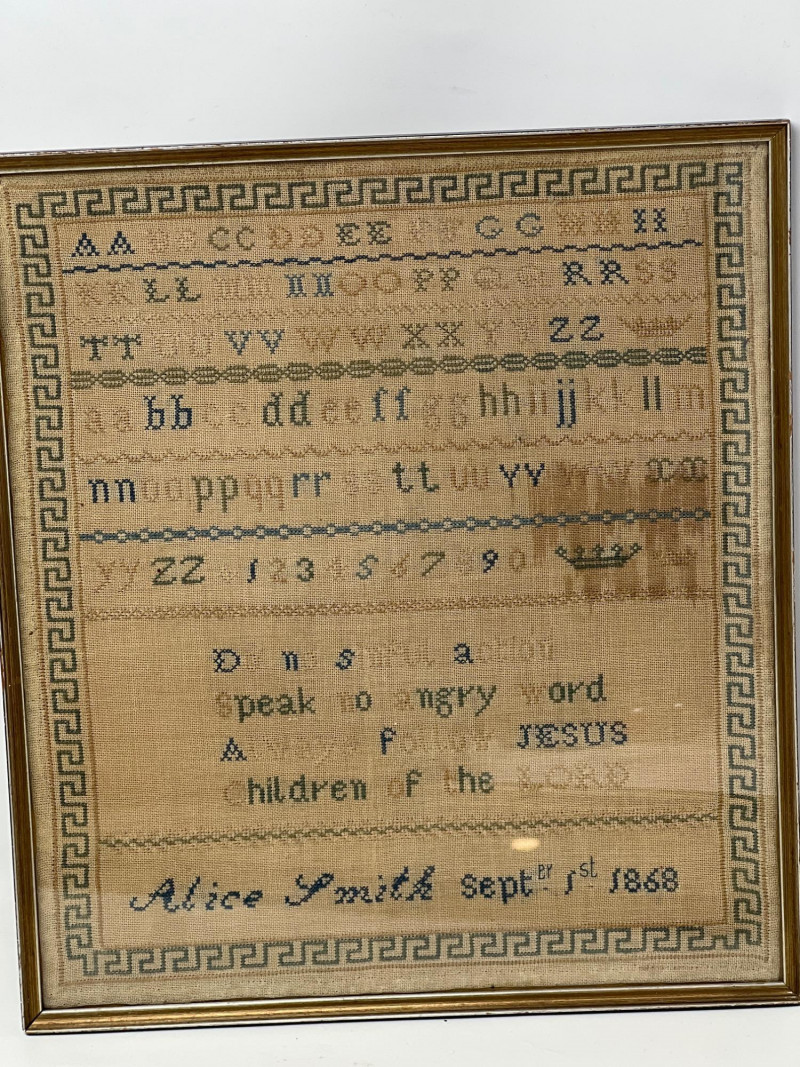 AA BB CC DD EE FF GG HH II
KK LL MM NN OO PP QQ RR SS
TT UU VV WW XX YY ZZ
aa bb cc dd ee ff gg hh ii jj kk ll m
nn oo pp qq rr ss tt uu vv ww xx
yy zz 1 2 3 4 5 6 7 8 9 0
Do no sinful action
Speak no angry word
Always follow JESUS
Children of the LORD
Alice Smith Septer 1st 1868